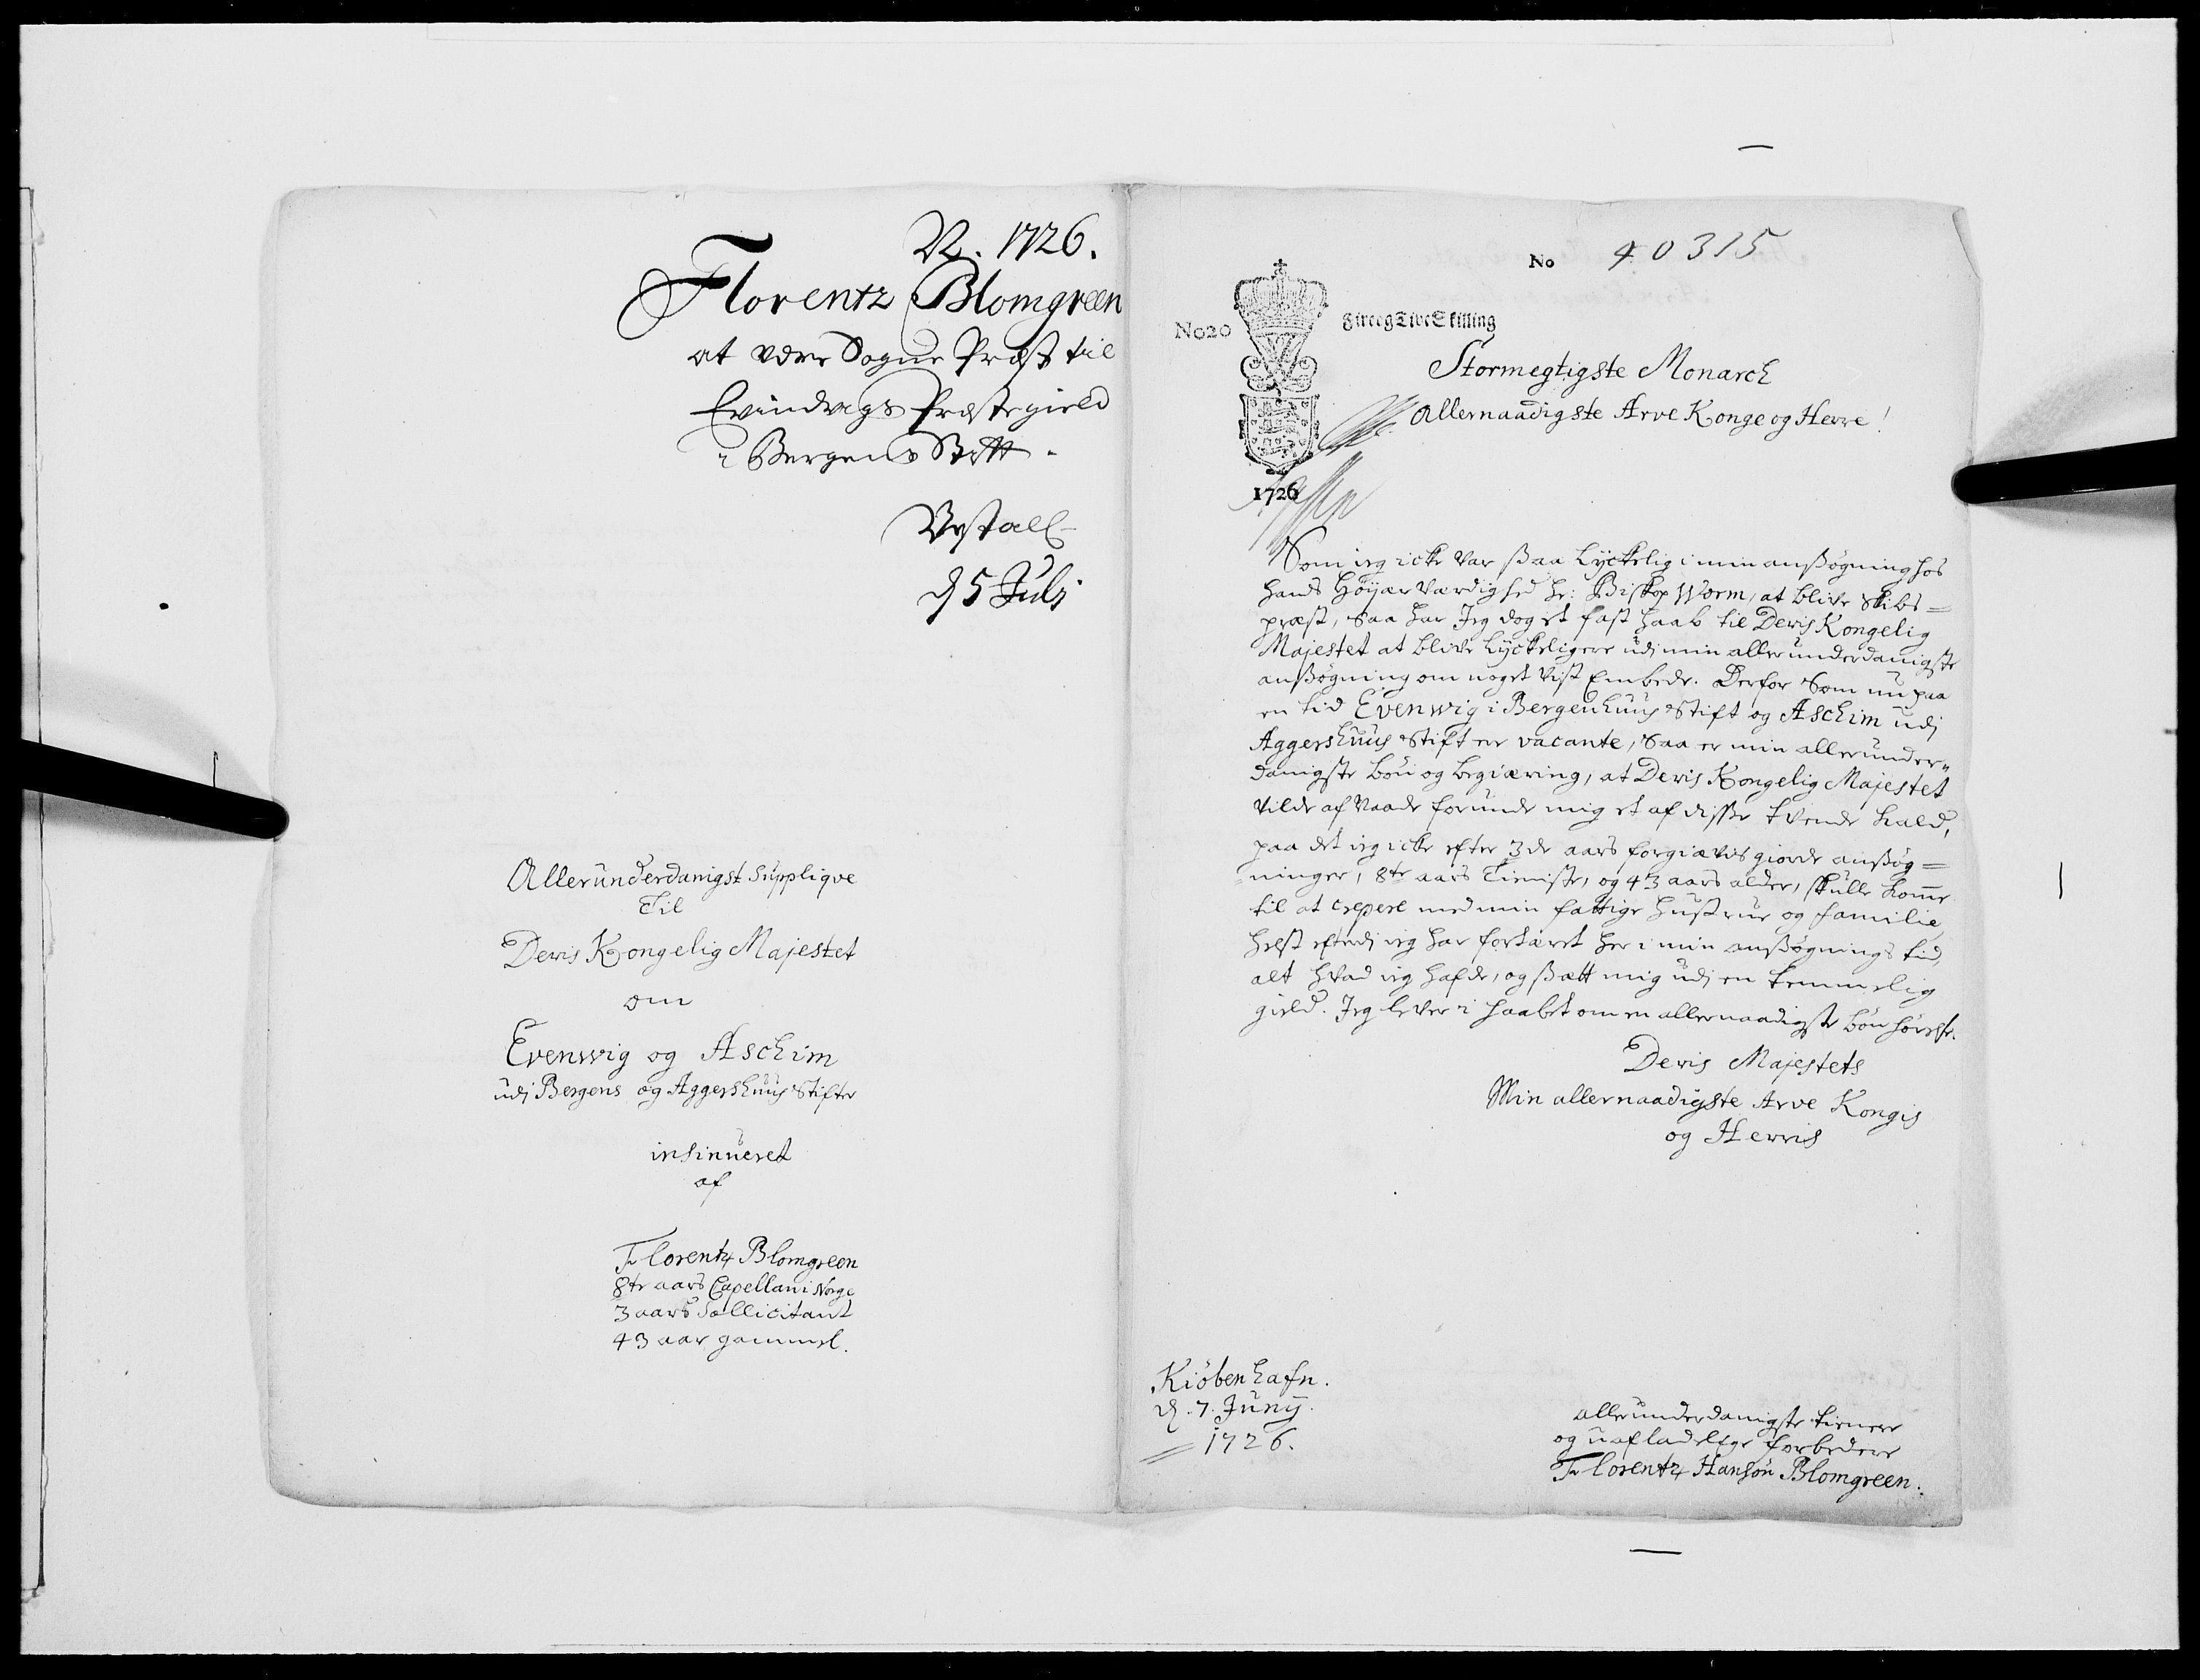 N. 1726.
Florentz Blomgreen
at være Sogne Præst til
Evindvigs Præstegield
i Bergens Stift.
d 5 Julj
Allerunderdanigst Suppliqve
Til
Deris Kongelig Majestet
om
Evenwig og Aschim
udj Bergens og Aggershuus Stifter
insinueret
af
Florentz Blomgreen
8te aars Capellan i Norge
3 aars Sollicitant
43 aar gammel.
No 40315
No 20
Fire og Tive Skilling
Stormegtigste Monarch
Allernaadigste Arve Konge og Herre!
1726
Som ieg icke var ßaa Lyckelig i min anßøgning hos
hands Høyærværdighed hr: Biskop Worm, at blive Skibs=
præst, saa har Jeg dog et fast haab til Deris Kongelig
Majestet at blive lyckeligere udj min allerunderdanigste
anßøgning om noget vist Embede. Derfor som nu paa
en tid Evenwig i Bergenhuus Stift og Aschim udj
Aggershuus Stift er vacante, saa er min allerunder„
danigste bøn og begiæring, at Deris Kongelig Majestet
vilde af Naade forunde mig et af disse tvende kald,
paa det ieg icke efter 3de aars forgiæves giorde anßøg=
ninger, 8te aars Tieniste, og 43 aars alder, skulle komme
til at crepere med min fattige hustrue og familie
helst efterdj ieg har fortæret her i min anßøgnings tid,
alt hvad ieg hafde, og ßatt mig udj en temmelig
gield. Jeg lever i haabet om en allernaadigste bønhørelse.
Deris Majestets
Min allernaadigste Arve Kongis
og Herris
Kiøbenhafn.
d. 7. Junij.
1726.
allerunderdanigste tienere
og uafladelige forbedere
Florentz Hansøn Blomgreen.